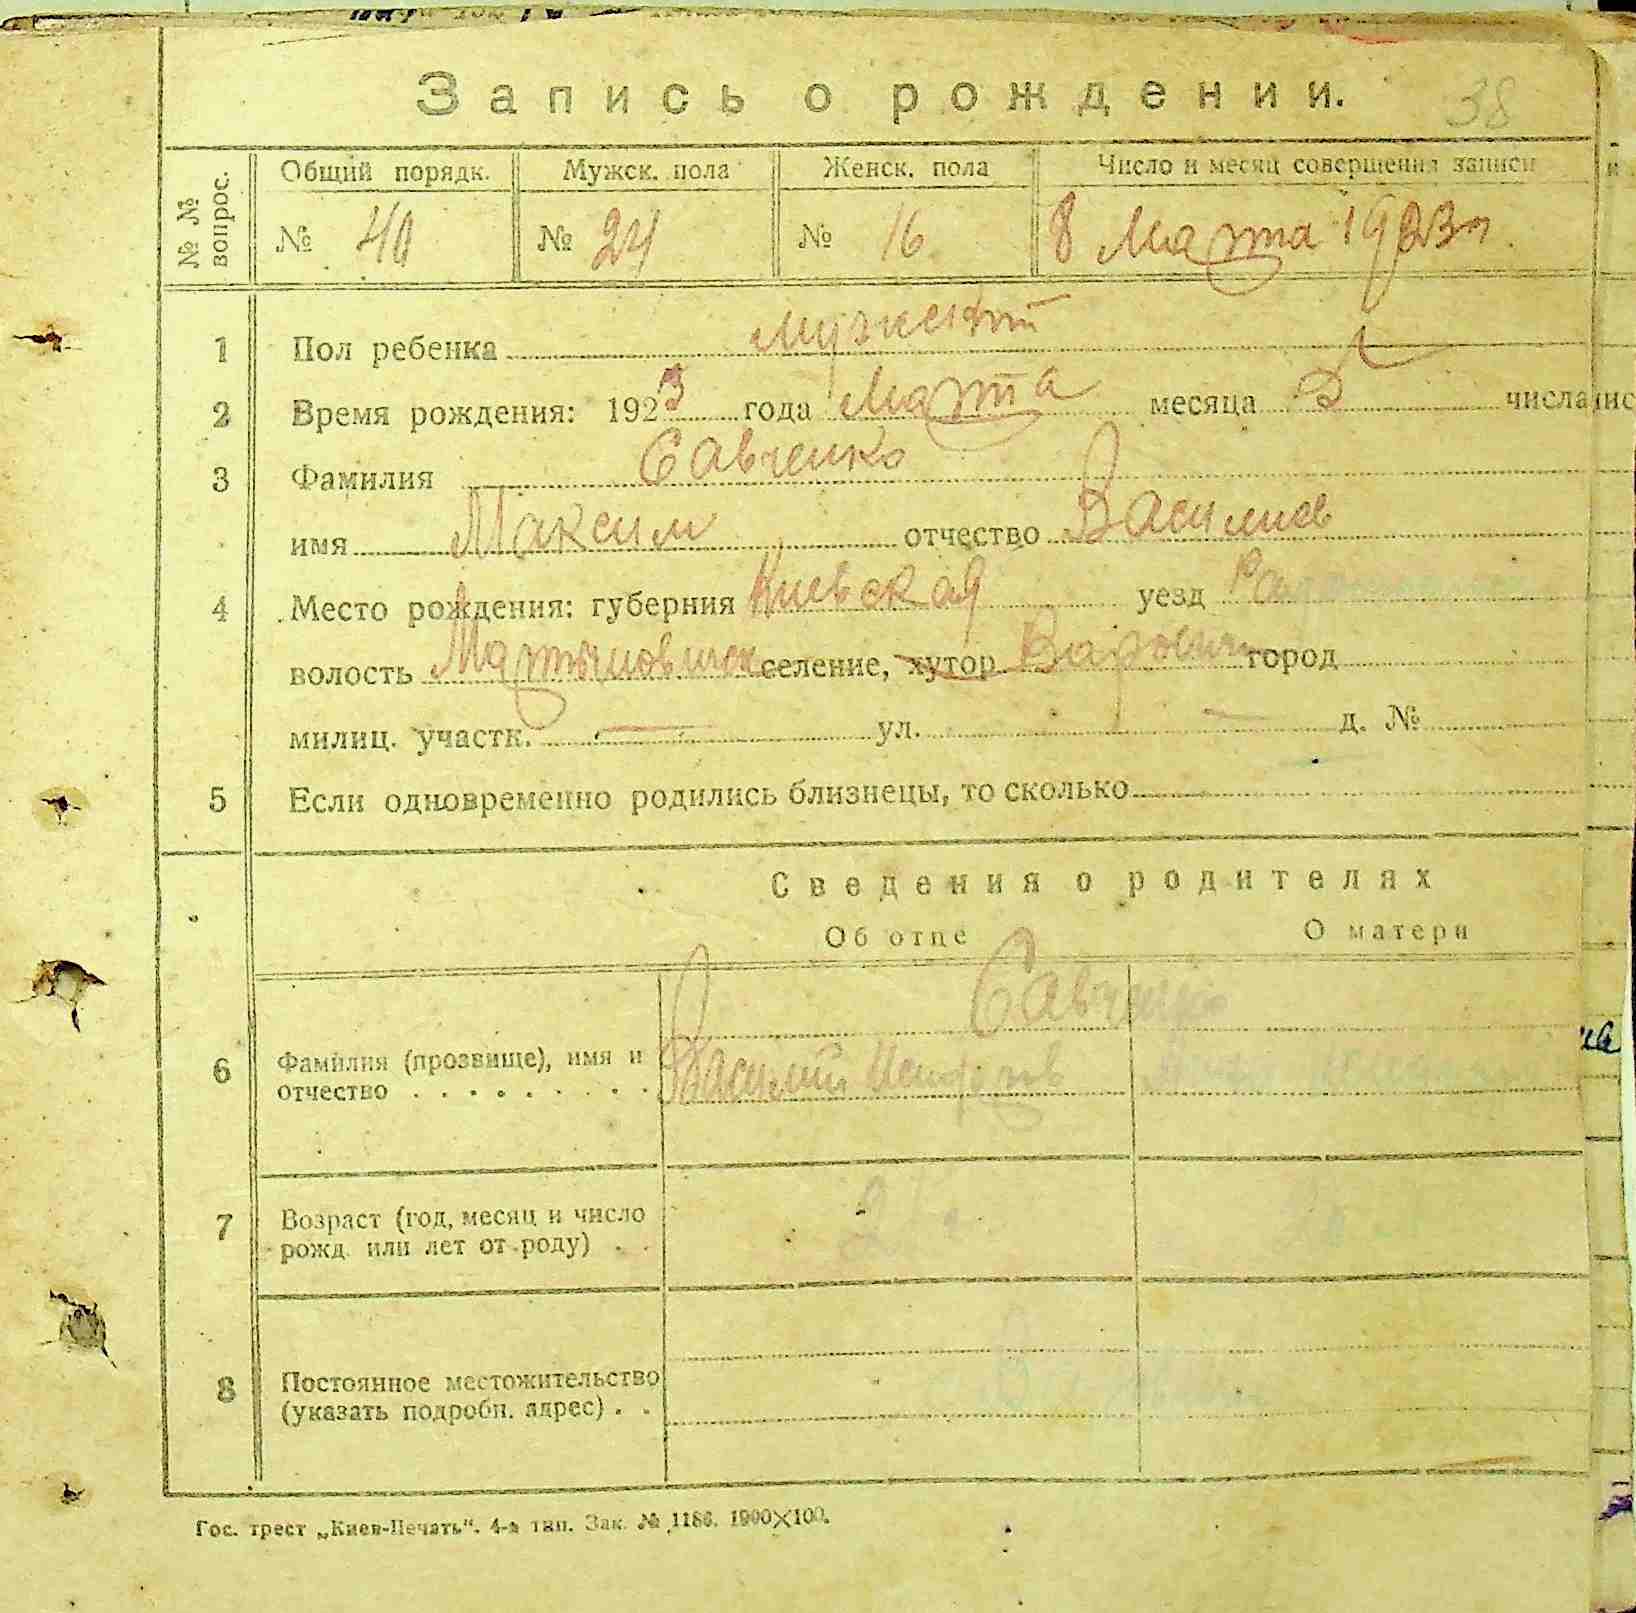 Запись о рождении. 38
№ № вопрос.
Общий порядк. Мужск. пола Женск. пола Число и месяц совершения записи
№ 40 № 24 № 16 8 Марта 1923 г.
1 Пол ребенка мужский
2 Время рождения: 1923 года Марта месяца 5 числа
3 Фамилия Савченко
имя Максим отчество Василиев
4 Место рождения: губерния Киевская уезд
волость Мартыновичск селение, хутор Варовичи город
милиц. участк. — ул. — д. №
5 Если одновременно родились близнецы, то сколько
Сведения о родителях
Об отце О матери
Савченко
6 Фамилия (прозвище), имя и отчество . . . . . . . . Василий
7 Возраст (год, месяц и число рожд. или лет от роду) . .
8 Постоянное местожительство (указать подробн. адрес) . .
Гос. трест „Киев-Печать“. 4-я тип. Зак. № 1186. 1900×100.